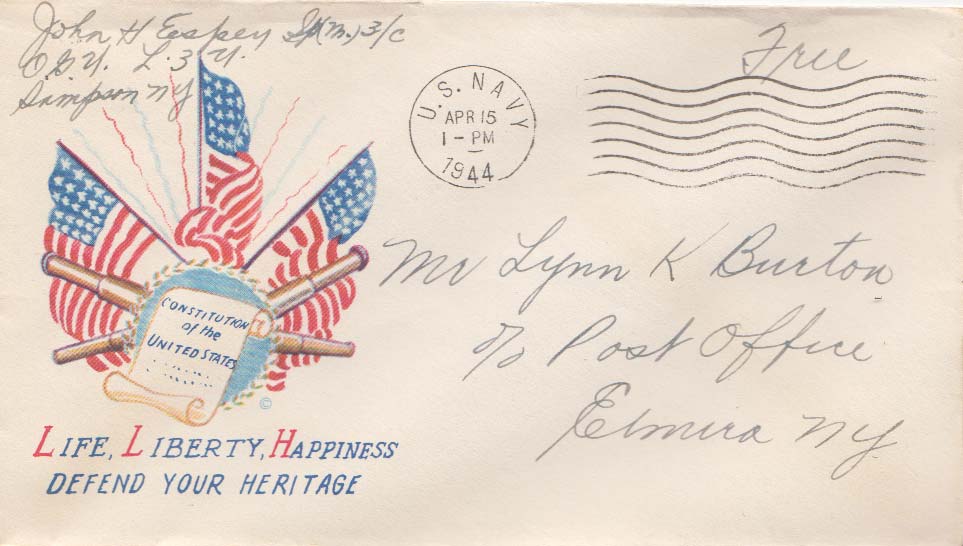 John H Espey Sp(M.) 3/c
O.G.U. L. 3 U.
Sampson NY
Free
U.S. NAVY
APR 15
1-PM
1944
Mr Lynn K Burton
c/o Post Office
Elmira NY
CONSTITUTION
of the
UNITED STATES
©
LIFE, LIBERTY, HAPPINESS
DEFEND YOUR HERITAGE